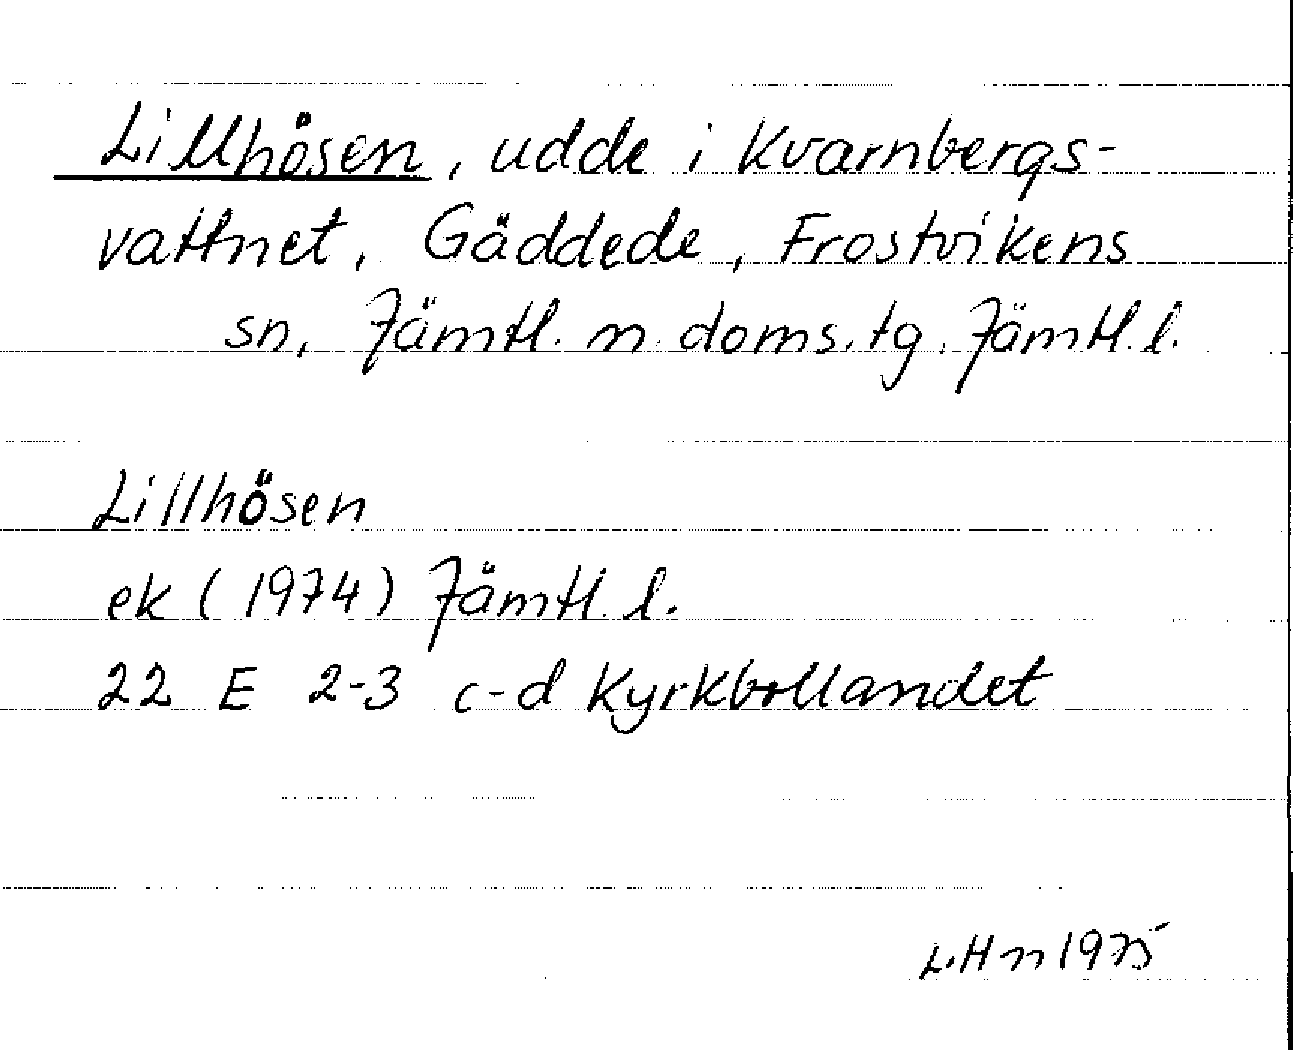 Lillhösen, udde i Kvarnbergs-
vattnet, Gäddede, Frostvikens
sn, Jämtl. n. doms. tg. Jämtl. l.
Lillhösen
ek (1974) Jämtl. l.
22 E 2-3 c-d Kyrkbollandet
L.Hn 1975